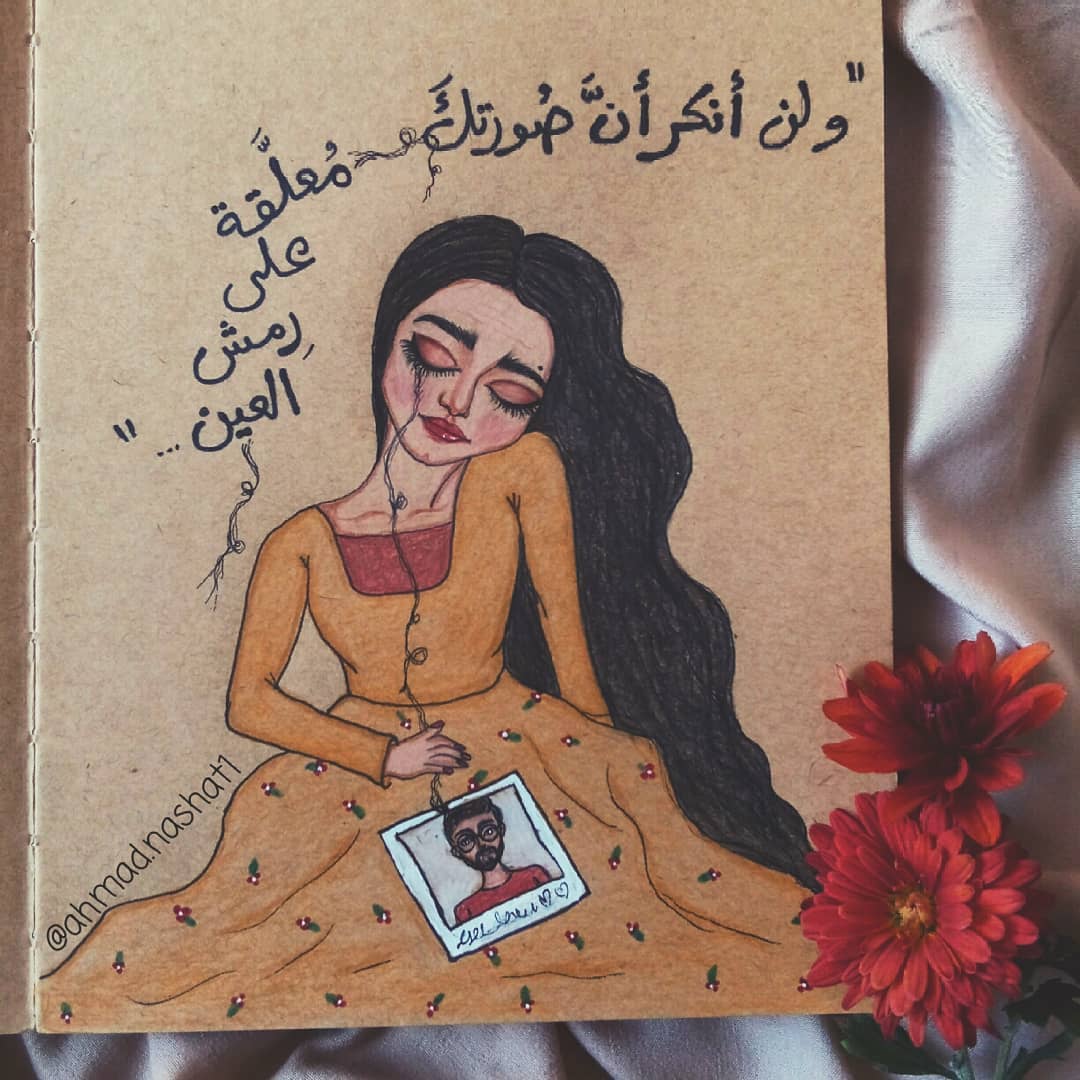 "ولن أنكر أنَّ صُورتكَ
مُعلَّقة
على
رِمش
العين..."
@ahmad.nashat1